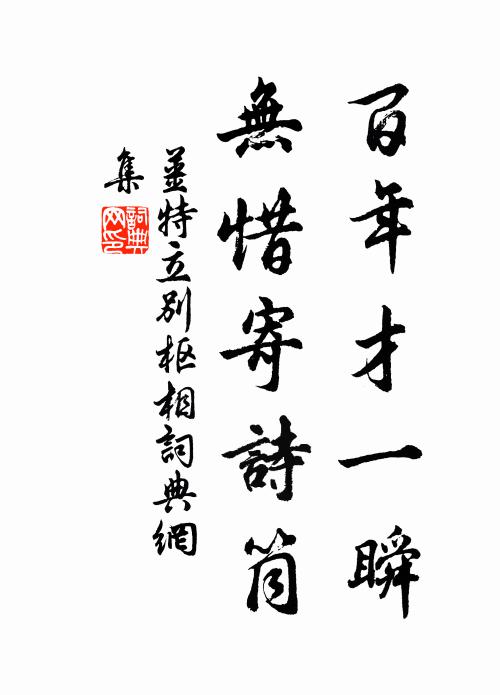 百年才一瞬
無惜寄詩筒
姜特立別枢相詞典網
集
詞典
网印